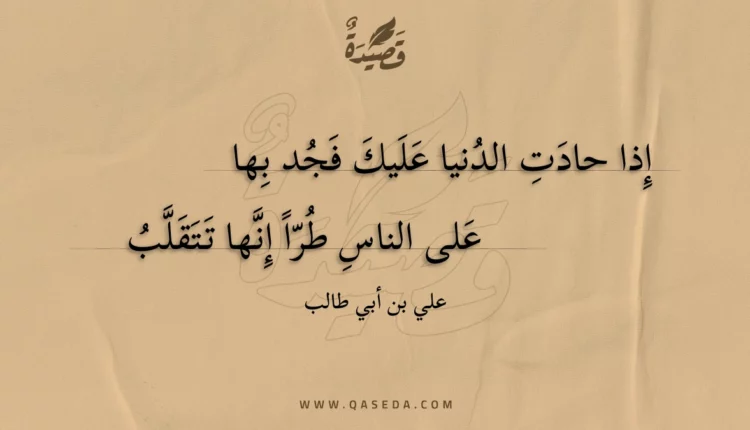 قَصِيدَةٌ
إِذا حادَتِ الدُنيا عَلَيكَ فَجُد بِها
عَلى الناسِ طُرّاً إِنَّها تَتَقَلَّبُ
علي بن أبي طالب
WWW.QASEDA.COM